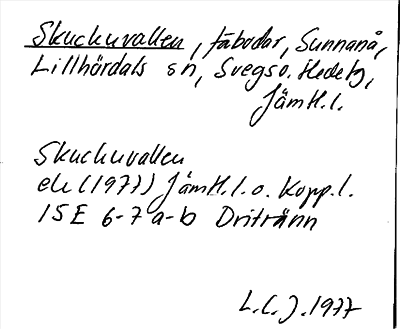 Skuckuvallen, fäbodar, Sunnanå,
Lillhärdals sn, Svegs o. Hedets,
Jämtl.l.
Skuckuvallen
ek (1977) Jämtl.l. o. Kopp.l.
15E 6-7 a-b Dritränn
L.C.J. 1977